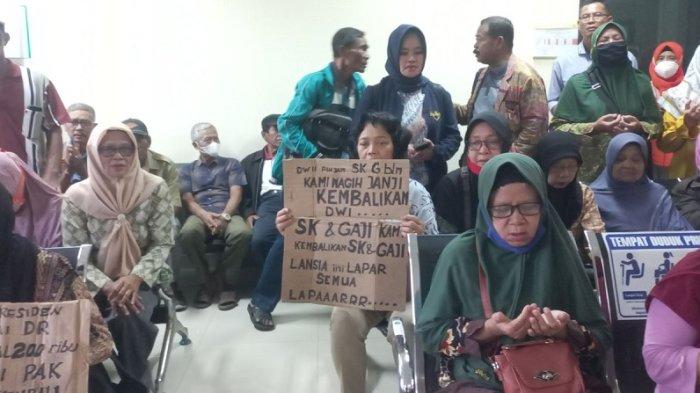 DWI PINJAM SK G bln
KAMI NAGIH JANJI
KEMBALIKAN
DWI.....
SK & GAJI KAMI
KEMBALIKAN SK & GAJI
LANSIA ini LAPAR
SEMUA
LAPAAARRR.....
RESIDEN
DR
200 ribu
PAK
TEMPAT DUDUK